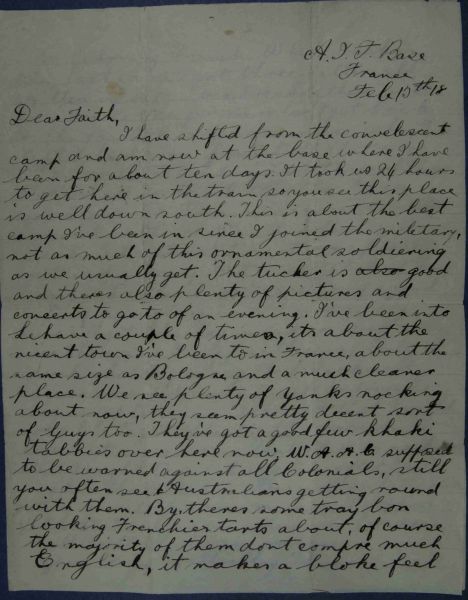 A.I.F. Base
France
Feb 15th 18
Dear Faith,
I have shifted from the convelescent
camp and am now at the base where I have
been for about ten days. It took us 26 hours
to get here in the train, so you see this place
is well down south. This is about the best
camp I've been in since I joined the miletary,
not as much of this ornamental soldiering
as we usually get. The tucker is also good
and theres also plenty of pictures and
concerts to go to of an evening. I've been into
Le have a couple of times, its about the
nicest town I've been to in France, about the
same size as Bologne and a much cleaner
place. We see plenty of Yanks nocking
about now, they seem pretty decent sort
of Guys too. They've got a good few khaki
tabbies over here now, W.A.A.C supposed
to be warned against all Colonials, still
you often see Australians getting round
with them. By, theres some tray bon
looking Frenchier tarts about, of course
the majority of them dont compre much
English, it makes a bloke feel